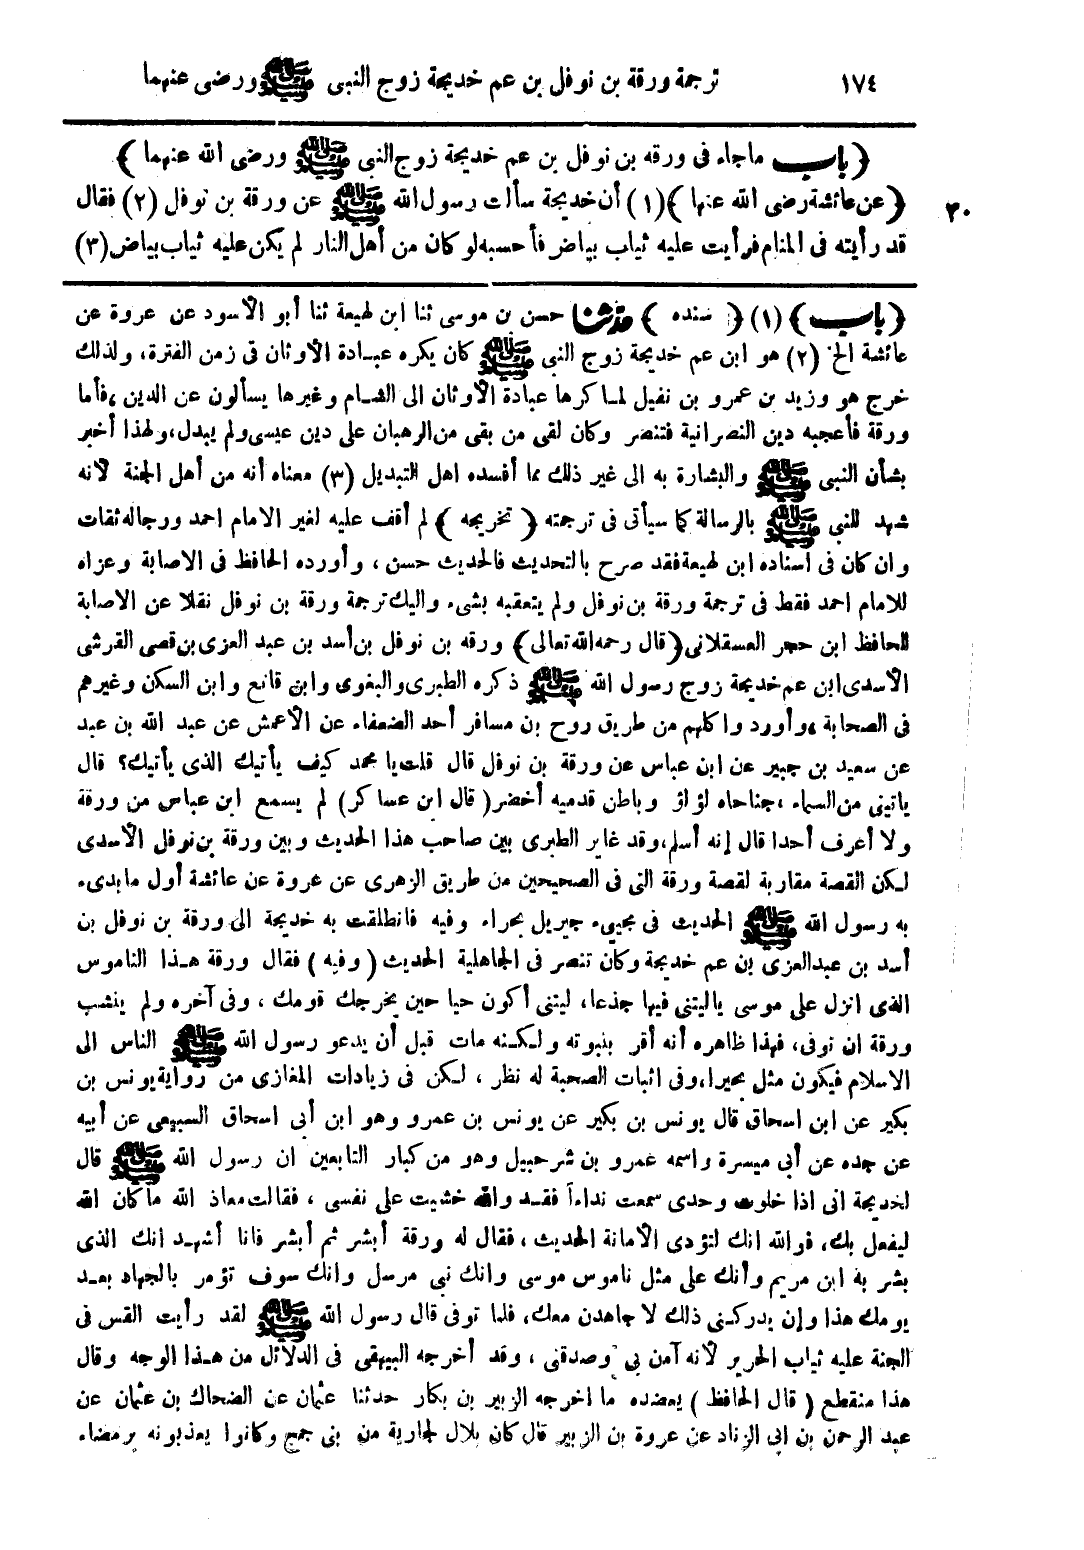 ١٧٤ ترجمة ورقة بن نوفل بن عم خديجة زوج النبى ﷺ ورضى عنهما
﴿ باب ماجاء فى ورقه بن نوفل بن عم خديجة زوج النبى ﷺ ورضى الله عنهما ﴾
٣٠ ﴿ عن عائشة رضى الله عنها ﴾ (١) أن خديجة سألت رسول الله ﷺ عن ورقة بن نوفل (٢) فقال
قد رأيته فى المنام فرأيت عليه ثياب بياض فأحسبه لو كان من أهل النار لم يكن عليه ثياب بياض (٣)
﴿ باب ﴾ (١) ﴿ سنده ﴾ حدثنا حسن بن موسى ثنا ابن لهيعة ثنا أبو الأسود عن عروة عن
عائشة الخ (٢) هو ابن عم خديجة زوج النبى ﷺ كان يكره عبادة الأوثان فى زمن الفترة، ولذلك
خرج هو وزيد بن عمرو بن نفيل لما كرها عبادة الأوثان الى الشام وغيرها يسألون عن الدين، فأما
ورقة فأعجبه دين النصرانية فتنصر وكان لقى من بقى من الرهبان على دين عيسى ولم يبدل، ولهذا أخبر
بشأن النبى ﷺ والبشارة به الى غير ذلك مما أفسده اهل التبديل (٣) معناه أنه من أهل الجنة لأنه
شهد للنبى ﷺ بالرسالة كما سيأتى فى ترجمته ﴿ تخريجه ﴾ لم أقف عليه لغير الامام احمد ورجاله ثقات
وان كان فى اسناده ابن لهيعة فقد صرح بالتحديث فالحديث حسن، وأورده الحافظ فى الاصابة وعزاه
للامام احمد فقط فى ترجمة ورقة بن نوفل ولم يتعقبه بشىء واليك ترجمة ورقة بن نوفل نقلا عن الاصابة
للحافظ ابن حجر العسقلانى ﴿ قال رحمه الله تعالى ﴾ ورقه بن نوفل بن أسد بن عبد العزى بن قصى القرشى
الأسدى ابن عم خديجة زوج رسول الله ﷺ ذكره الطبرى والبغوى وابن قانع وابن السكن وغيرهم
فى الصحابة، وأوردوا كلهم من طريق روح بن مسافر أحد الضعفاء عن الأعمش عن عبد الله بن عبد
عن سعيد بن جبير عن ابن عباس عن ورقة بن نوفل قال قلت يا محمد كيف يأتيك الذى يأتيك؟ قال
يأتينى من السماء، جناحاه لؤلؤ وباطن قدميه أخضر (قال ابن عساكر) لم يسمع ابن عباس من ورقة
ولا أعرف أحدا قال إنه أسلم، وقد غاير الطبرى بين صاحب هذا الحديث وبين ورقة بن نوفل الأسدى
لكن القصة مقاربة لقصة ورقة التى فى الصحيحين من طريق الزهرى عن عروة عن عائشة أول ما بدىء
به رسول الله ﷺ الحديث فى مجىء جبريل بحراء وفيه فانطلقت به خديجة الى ورقة بن نوفل بن
أسد بن عبد العزى بن عم خديجة وكان تنصر فى الجاهلية الحديث (وفيه) فقال ورقة هذا الناموس
الذى انزل على موسى ياليتنى فيها جذعا، ليتنى أكون حيا حين يخرجك قومك، وفى آخره ولم ينشب
ورقة ان توفى، فهذا ظاهره أنه أقر بنبوته ولكنه مات قبل أن يدعو رسول الله ﷺ الناس الى
الاسلام فيكون مثل بحيرا، وفى اثبات الصحبة له نظر، لكن فى زيادات المغازى من رواية يونس بن
بكير عن ابن اسحاق قال يونس بن بكير عن يونس بن عمرو وهو ابن أبى اسحاق السبيعى عن أبيه
عن جده عن أبى ميسرة واسمه عمرو بن شرحبيل وهو من كبار التابعين ان رسول الله ﷺ قال
لخديجة انى اذا خلوت وحدى سمعت نداءاً فقد والله خشيت على نفسى، فقالت معاذ الله ما كان الله
ليفعل بك، فوالله انك لتؤدى الأمانة الحديث، فقال له ورقة أبشر ثم أبشر فانا أشهد انك الذى
بشر به ابن مريم وأنك على مثل ناموس موسى وانك نبى مرسل وانك سوف تؤمر بالجهاد بعد
يومك هذا وإن يدركنى ذلك لا جاهدن معك، فلما توفى قال رسول الله ﷺ لقد رأيت القس فى
الجنة عليه ثياب الحرير لأنه آمن بى وصدقنى، وقد أخرجه البيهقى فى الدلائل من هذا الوجه وقال
هذا منقطع (قال الحافظ) يعضده ما اخرجه الزبير بن بكار حدثنا عثمان عن الضحاك بن عثمان عن
عبد الرحمن بن ابى الزناد عن عروة بن الزبير قال كان بلال لجارية من بنى جمح وكانوا يعذبونه برمضاء